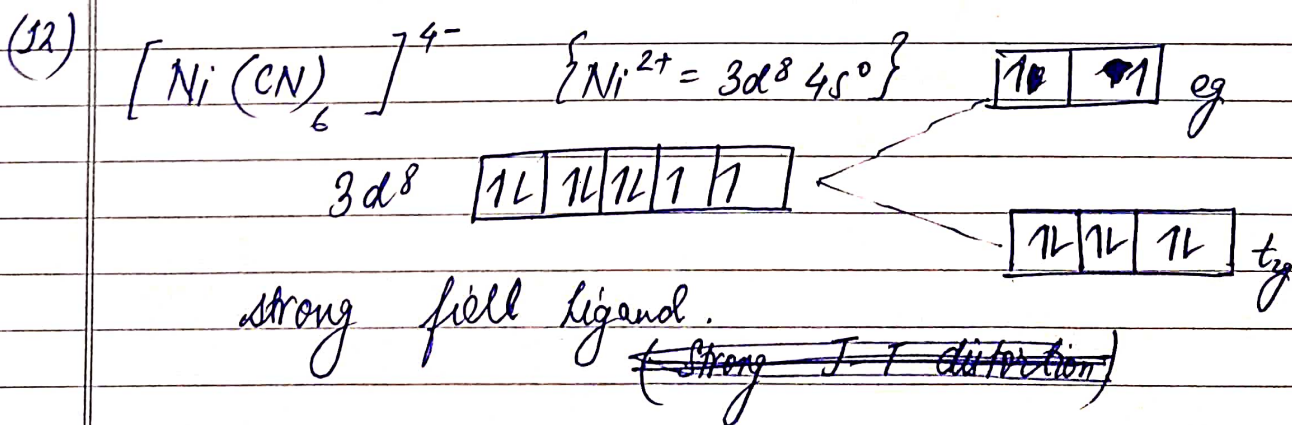 (12) [Ni(CN)₆]⁴⁻ {Ni²⁺ = 3d⁸ 4s⁰} 1 1 eg
3d⁸ 1L 1L 1L 1 1
1L 1L 1L t₂g
strong field ligand.
(Strong J-T distortion)